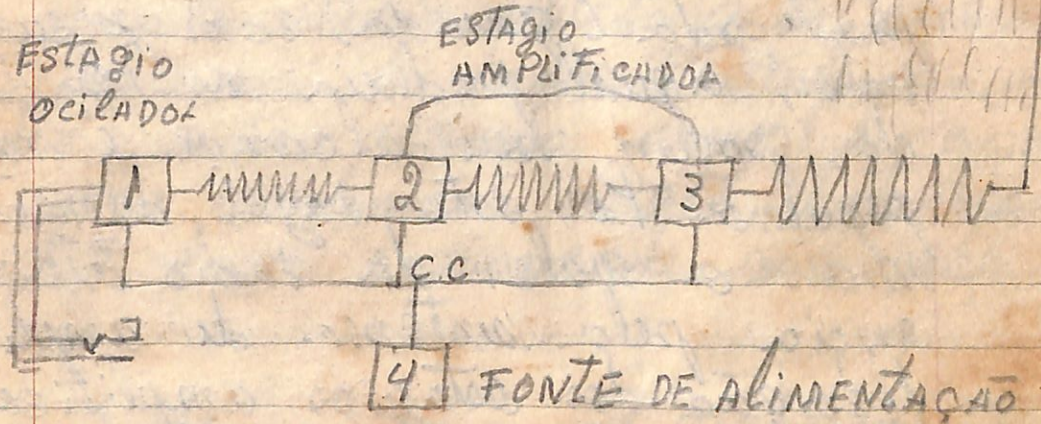 ESTAGIO
OCILADOR
ESTAGIO
AMPLIFICADOR
1
2
3
C.C.
4 FONTE DE ALIMENTAÇÃO